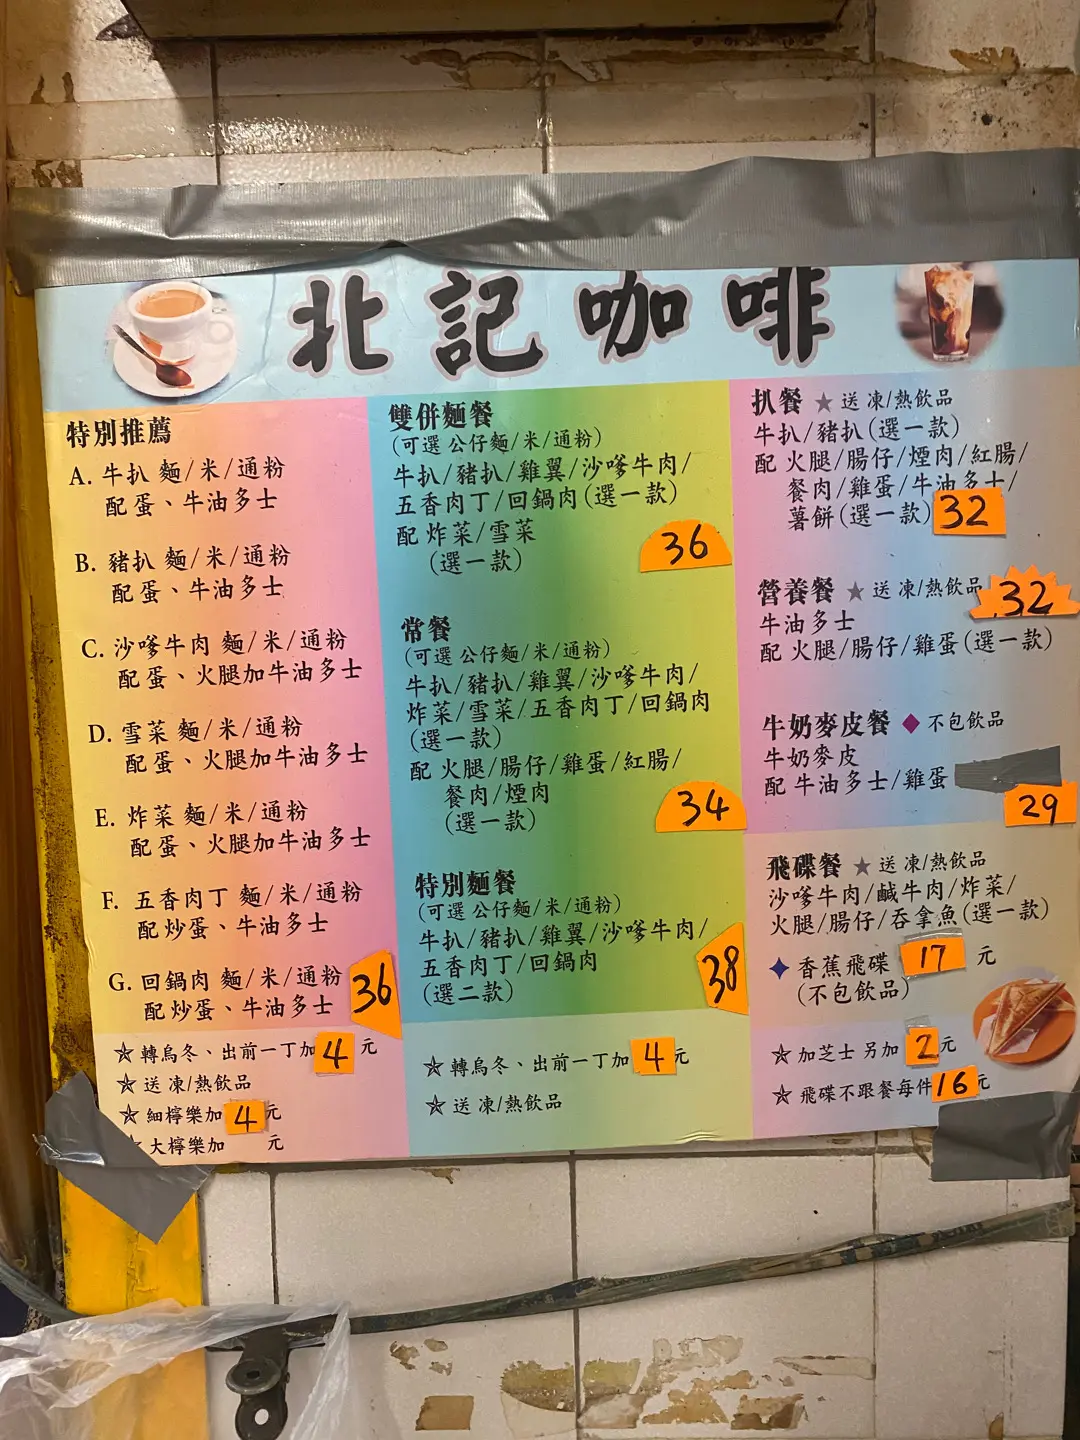 北記咖啡
特別推薦
A. 牛扒 麵/米/通粉
配蛋、牛油多士
B. 豬扒 麵/米/通粉
配蛋、牛油多士
C. 沙嗲牛肉 麵/米/通粉
配蛋、火腿加牛油多士
D. 雪菜 麵/米/通粉
配蛋、火腿加牛油多士
E. 炸菜 麵/米/通粉
配蛋、火腿加牛油多士
F. 五香肉丁 麵/米/通粉
配炒蛋、牛油多士
G. 回鍋肉 麵/米/通粉
配炒蛋、牛油多士
36
☆ 轉烏冬、出前一丁加 4 元
☆ 送 凍/熱飲品
☆ 細檸樂加 4 元
大檸樂加 元
雙併麵餐
(可選 公仔麵/米/通粉)
牛扒/豬扒/雞翼/沙嗲牛肉/
五香肉丁/回鍋肉(選一款)
配 炸菜/雪菜
(選一款)
36
常餐
(可選 公仔麵/米/通粉)
牛扒/豬扒/雞翼/沙嗲牛肉/
炸菜/雪菜/五香肉丁/回鍋肉
(選一款)
配 火腿/腸仔/雞蛋/紅腸/
餐肉/煙肉
(選一款)
34
特別麵餐
(可選 公仔麵/米/通粉)
牛扒/豬扒/雞翼/沙嗲牛肉/
五香肉丁/回鍋肉
(選二款)
38
☆ 轉烏冬、出前一丁加 4 元
☆ 送 凍/熱飲品
扒餐 ★ 送 凍/熱飲品
牛扒/豬扒(選一款)
配 火腿/腸仔/煙肉/紅腸/
餐肉/雞蛋/牛油多士/
薯餅(選一款) 32
營養餐 ★ 送 凍/熱飲品 32
牛油多士
配 火腿/腸仔/雞蛋(選一款)
牛奶麥皮餐 ◆ 不包飲品
牛奶麥皮
配 牛油多士/雞蛋
29
飛碟餐 ★ 送 凍/熱飲品
沙嗲牛肉/鹹牛肉/炸菜/
火腿/腸仔/吞拿魚(選一款)
✦ 香蕉飛碟 17 元
(不包飲品)
☆ 加芝士 另加 2 元
☆ 飛碟不跟餐每件 16 元